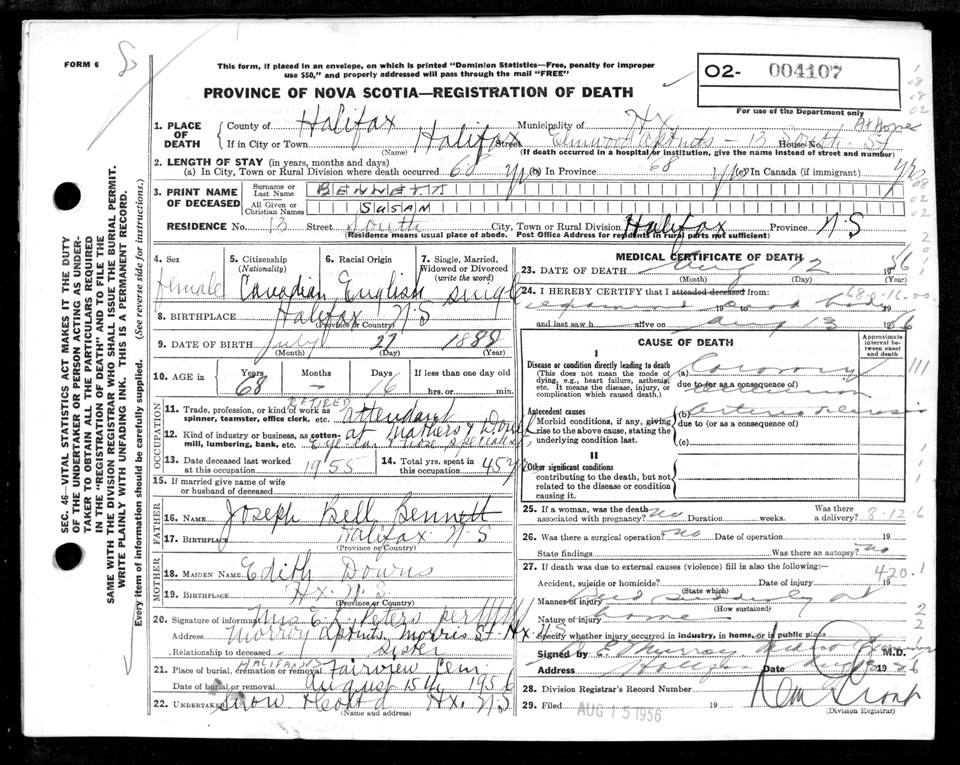 FORM 6
This form, if placed in an envelope, on which is printed "Dominion Statistics—Free, penalty for improper
use $50," and properly addressed will pass through the mail "FREE"
PROVINCE OF NOVA SCOTIA—REGISTRATION OF DEATH
O2- 004107
For use of the Department only
SEC. 46—VITAL STATISTICS ACT MAKES IT THE DUTY
OF THE UNDERTAKER OR PERSON ACTING AS UNDER-
TAKER TO OBTAIN ALL THE PARTICULARS REQUIRED
IN THE "REGISTRATION OF DEATH" AND TO FILE THE
SAME WITH THE DIVISION REGISTRAR WHO SHALL ISSUE THE BURIAL PERMIT.
WRITE PLAINLY WITH UNFADING INK. THIS IS A PERMANENT RECORD.
Every item of information should be carefully supplied. (See reverse side for instructions.)
1. PLACE OF DEATH
County of Halifax Municipality of Hx. At Home
If in City or Town Halifax Street Elmwood Aptmts - 13 South St House No.
(Name) (If death occurred in a hospital or institution, give the name instead of street and number)
2. LENGTH OF STAY (in years, months and days)
(a) In City, Town or Rural Division where death occurred 68 yrs (b) In Province 68 yrs (c) In Canada (if immigrant) yrs
3. PRINT NAME OF DECEASED
Surname or Last Name BENNETT
All Given or Christian Names SUSAN
RESIDENCE No. 13 Street South City, Town or Rural Division Halifax Province N.S
(Residence means usual place of abode. Post Office Address for residents in rural parts not sufficient)
4. Sex female
5. Citizenship (Nationality) Canadian
6. Racial Origin English
7. Single, Married, Widowed or Divorced (write the word) single
8. BIRTHPLACE Halifax N.S
(Province or Country)
9. DATE OF BIRTH July 27 1888
(Month) (Day) (Year)
10. AGE IN Years 68 Months - Days 16 If less than one day old hrs. or min.
OCCUPATION
11. Trade, profession, or kind of work as spinner, teamster, office clerk, etc. RETIRED attendant
12. Kind of industry or business, as cotton-mill, lumbering, bank, etc. at Mathers & Doull Eye Ear Nose Specialist
13. Date deceased last worked at this occupation 1955
14. Total yrs. spent in this occupation 45 yrs
15. If married give name of wife or husband of deceased
FATHER
16. NAME Joseph Bell Bennett
17. BIRTHPLACE Halifax N.S
(Province or Country)
MOTHER
18. MAIDEN NAME Edith Downs
19. BIRTHPLACE Hx. N.S.
(Province or Country)
20. Signature of informant Mrs E. L. Peters per
Address Murray Aptmts, Morris St. Hx. N.S
Relationship to deceased Sister
21. Place of burial, cremation or removal HALIFAX NS Fairview Cem
Date of burial or removal August 15th 1956
22. UNDERTAKER Snow & Co Ltd Hx. N.S
(Name and address)
MEDICAL CERTIFICATE OF DEATH
23. DATE OF DEATH Aug 12 1956
(Month) (Day) (Year)
24. I HEREBY CERTIFY that I attended deceased from:
examined dead body
19 to 19
and last saw h alive on Aug 13 1956
CAUSE OF DEATH
Approximate interval between onset and death
I
Disease or condition directly leading to death
(This does not mean the mode of dying, e.g., heart failure, asthenia, etc. It means the disease, injury, or complication which caused death.)
(a) Coronary
due to (or as a consequence of) occlusion
Antecedent causes
Morbid conditions, if any, giving rise to the above cause, stating the underlying condition last.
(b) Arteriosclerosis
due to (or as a consequence of)
(c)
II
Other significant conditions
contributing to the death, but not related to the disease or condition causing it.
25. If a woman, was the death associated with pregnancy? no Duration weeks. Was there a delivery? 8-12-6
26. Was there a surgical operation? no Date of operation 19
State findings Was there an autopsy? no
27. If death was due to external causes (violence) fill in also the following:— 420.1
Accident, suicide or homicide? Date of injury 19
(State which)
Manner of injury Died suddenly at
(How sustained)
Nature of injury home
Specify whether injury occurred in industry, in home, or in public place
Signed by Murray M.D.
Address Halifax Date Aug 1956
28. Division Registrar's Record Number
29. Filed AUG 15 1956 19
(Division Registrar)